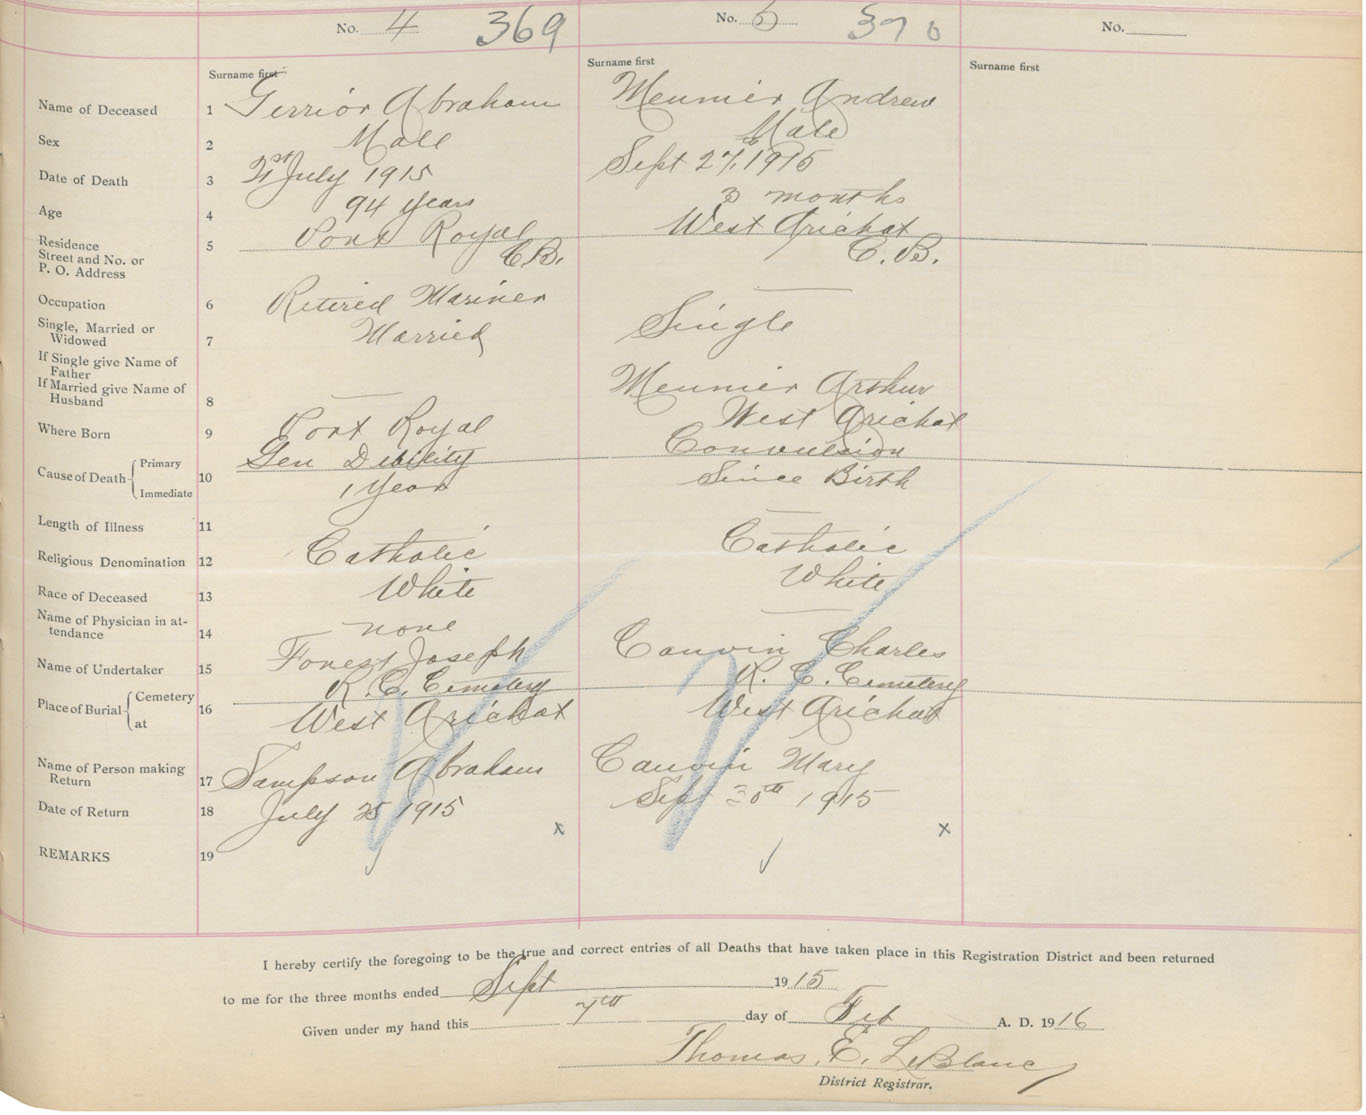 No. 4 369 No. 5 370 No.
Surname first Surname first Surname first
Name of Deceased 1 Gerrior Abraham Meunier Andrew
Sex 2 Male Male
Date of Death 3 21st July 1915 Sept 27th 1915
Age 4 94 years 3 months
Residence Street and No. or P. O. Address 5 Port Royal C.B. West Arichat C. B.
Occupation 6 Retired Mariner —
Single, Married or Widowed 7 Married Single
If Single give Name of Father
If Married give Name of Husband 8 — Meunier Arthur
Where Born 9 Port Royal West Arichat
Cause of Death Primary 10 Gen Dibility Convulsion
Immediate 1 year Since Birth
Length of Illness 11 —
Religious Denomination 12 Catholic Catholic
Race of Deceased 13 White White
Name of Physician in attendance 14 none —
Name of Undertaker 15 Forest Joseph Cauvin Charles
Place of Burial Cemetery 16 R. C. Cemetery R. C. Cemetery
at West Arichat West Arichat
Name of Person making Return 17 Sampson Abraham Cauvin Mary
Date of Return 18 July 25 1915 Sept 30th 1915
x x
REMARKS 19
I hereby certify the foregoing to be the true and correct entries of all Deaths that have taken place in this Registration District and been returned
to me for the three months ended Sept 1915
Given under my hand this 7th day of Feb A. D. 1916
Thomas. E. LeBlanc
District Registrar.